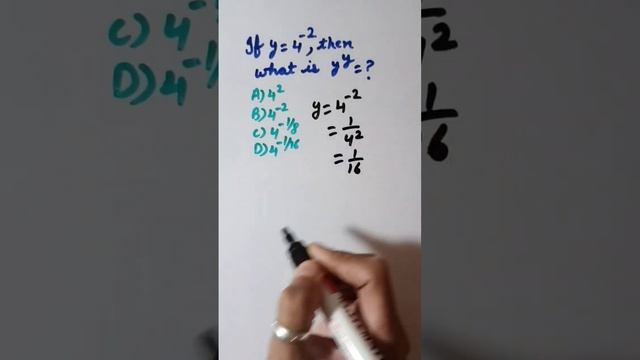 If y=4^-2, then
what is y^y=?
A) 4^2
B) 4^-2
C) 4^-1/8
D) 4^-1/16
y=4^-2
=1/4^2
=1/16